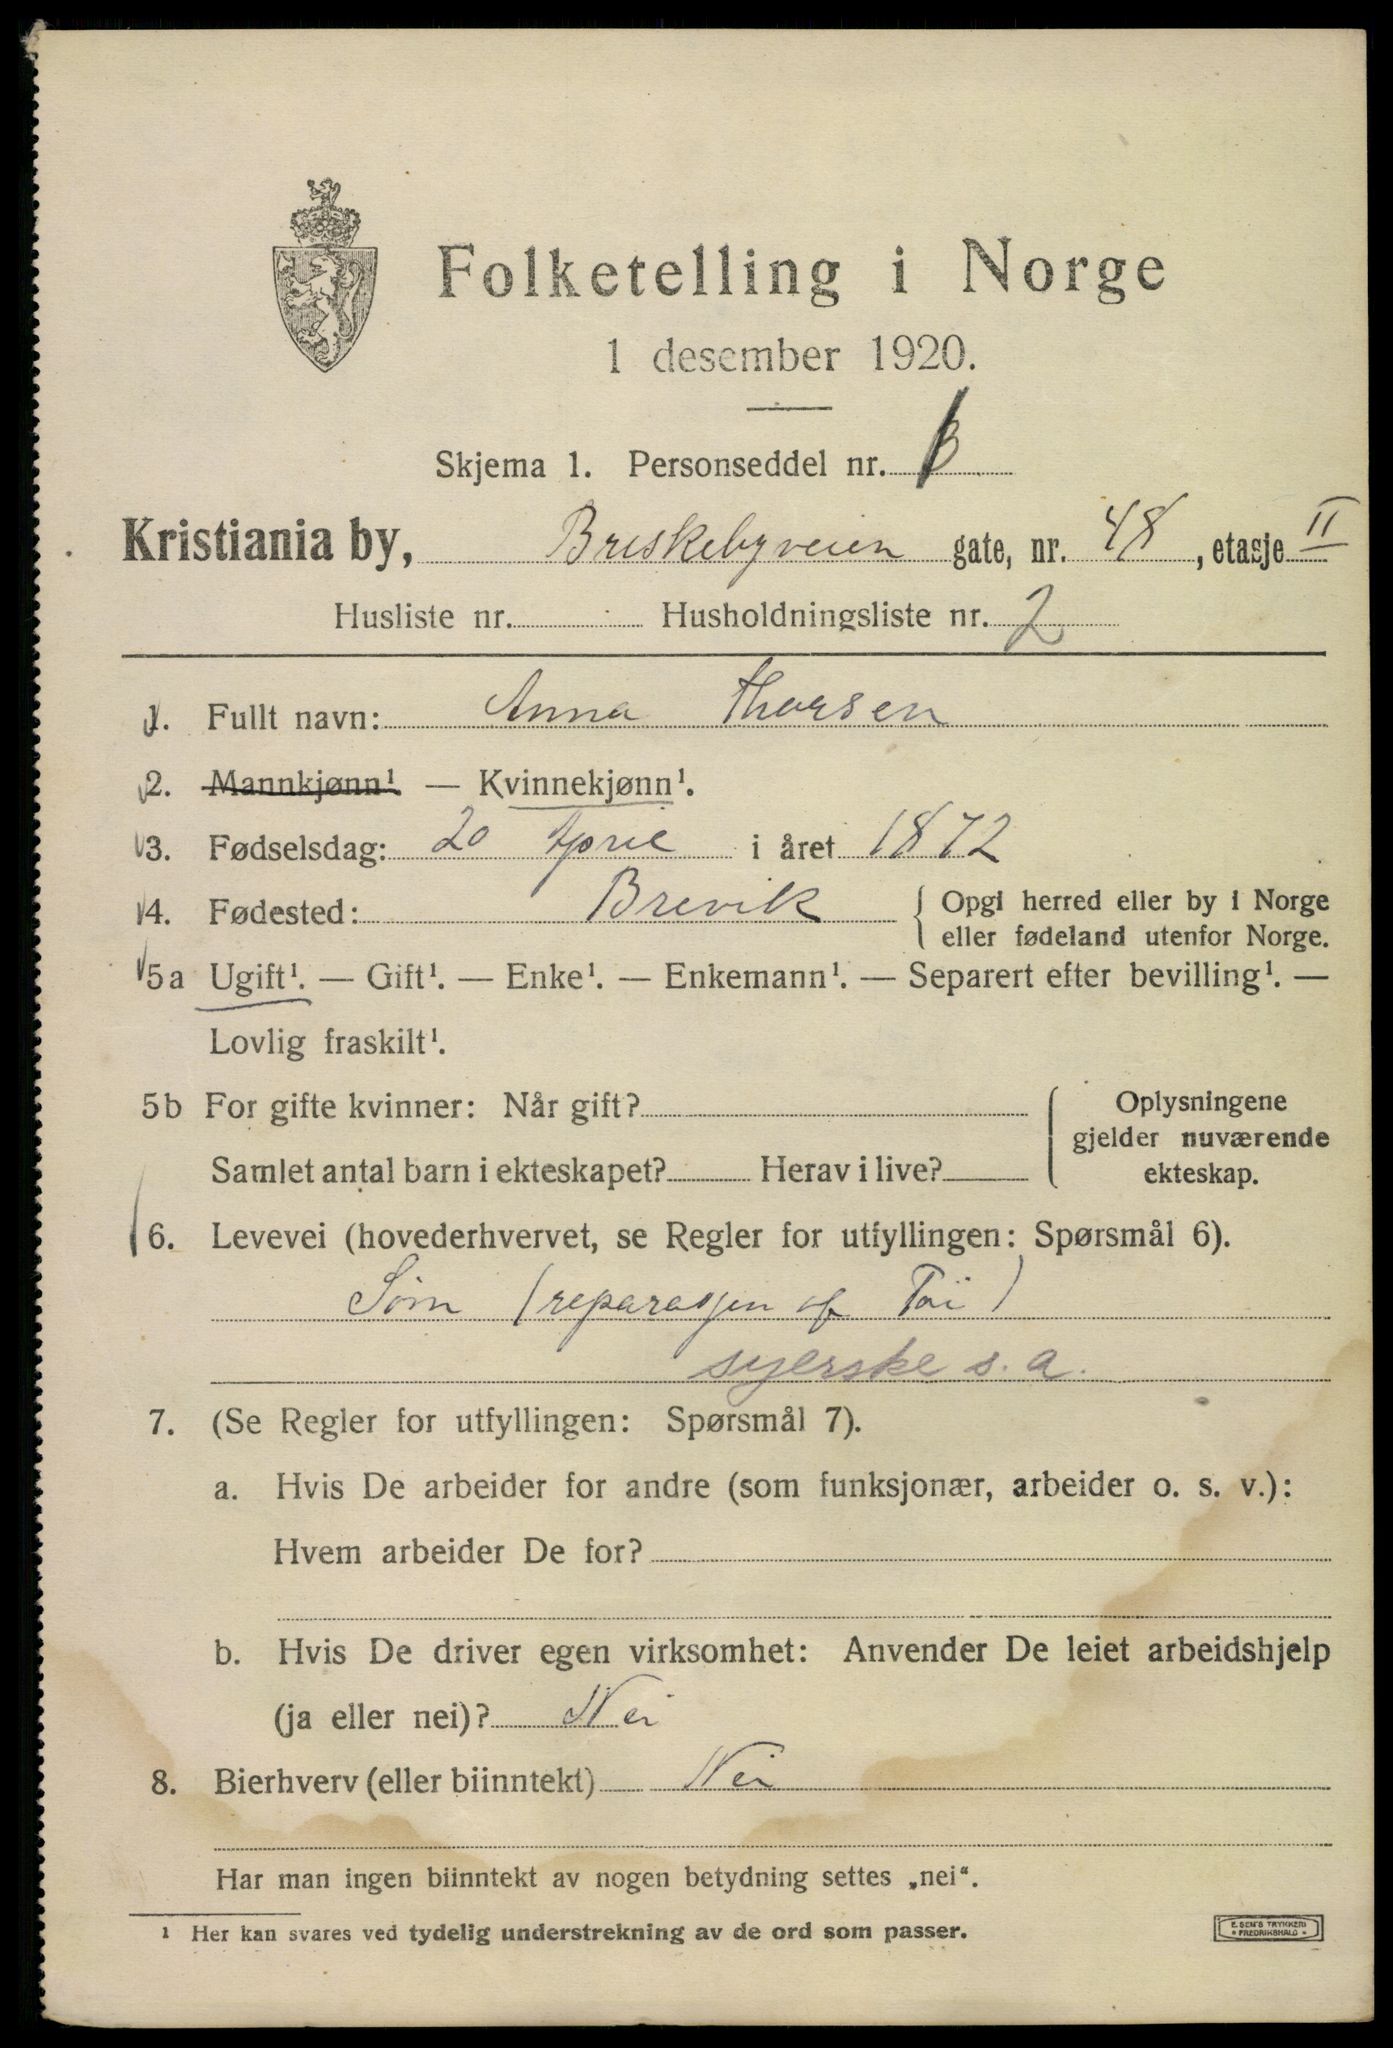 Folketelling i Norge
1 desember 1920.
Skjema 1. Personseddel nr.
Kristiania by, Briskebyveien gate, nr. 48, etasje II
Husliste nr. Husholdningsliste nr. 2
1. Fullt navn: Anna Thorsen
2. Mannkjønn¹ — Kvinnekjønn¹.
3. Fødselsdag: 20 April i året 1872
4. Fødested: Brevik { Opgi herred eller by i Norge
eller fødeland utenfor Norge.
5a Ugift¹. — Gift¹. — Enke¹. — Enkemann¹. — Separert efter bevilling¹. —
Lovlig fraskilt¹.
5b For gifte kvinner: Når gift?
Samlet antal barn i ekteskapet? Herav i live?
{ Oplysningene
gjelder nuværende
ekteskap.
6. Levevei (hovederhvervet, se Regler for utfyllingen: Spørsmål 6).
Søm (reparasjen af Töi)
syerske s. a.
7. (Se Regler for utfyllingen: Spørsmål 7).
a. Hvis De arbeider for andre (som funksjonær, arbeider o. s. v.):
Hvem arbeider De for?
b. Hvis De driver egen virksomhet: Anvender De leiet arbeidshjelp
(ja eller nei)? Nei
8. Bierhverv (eller biinntekt) Nei
Har man ingen biinntekt av nogen betydning settes „nei“.
¹ Her kan svares ved tydelig understrekning av de ord som passer.
E. SEM'S TRYKKERI
* FREDRIKSHALD *